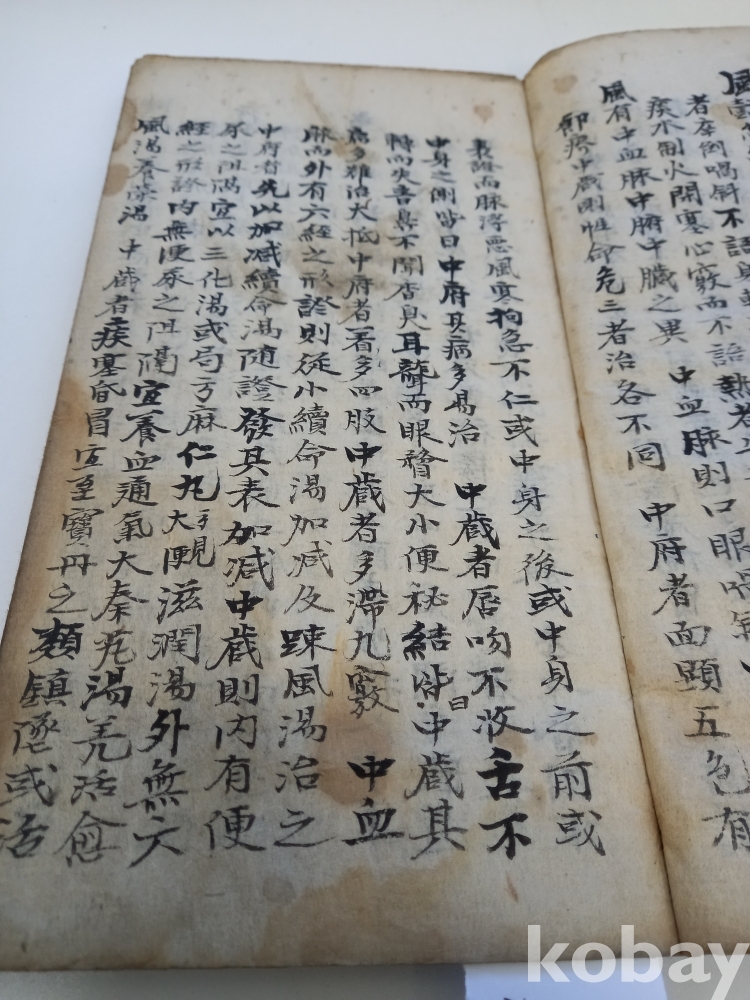 者卒倒喎斜不語
疾水制火閉塞心竅而不語熱者
風有中血脉中腑中臟之異 中血脉則口眼喎
節疼中臓則性命危三者治各不同 中府者面顕五色有
表證而脉浮悪風寒拘急不仁或中身之後或中身之前或
中身之側皆曰中府其病多易治 中蔵者唇吻不收舌不
轉而失音鼻不聞香臭耳聾而眼瞀大小便祕結皆曰中蔵其
病多難治大抵中府者着多四肢中蔵者多滞九竅 中血
脉而外有六經之形證則從小續命湯加减及踈風湯治之
中府者先以加减續命湯随證發其表加减中蔵則内有便
尿之阻隔宜以三化湯或局方麻仁丸大便滋潤湯外無六
經之形證内無便尿之阻隔宜養血通氣大秦芃湯羌活愈
風湯養榮湯 中蔵者痰塞昏冒宜至寶丹之類鎮墜或活
kobay